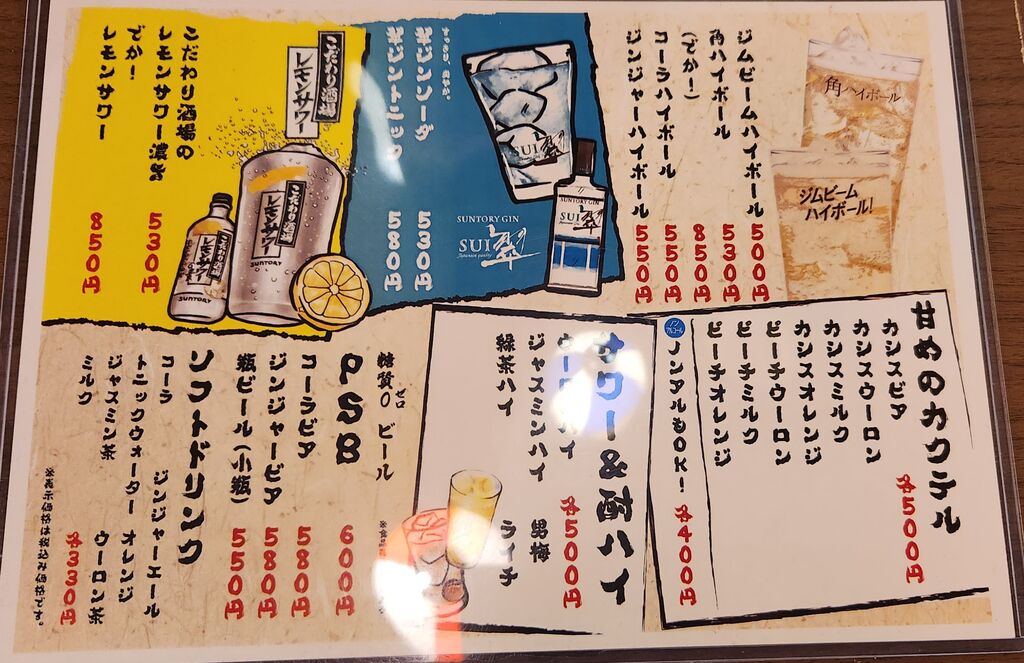 ジムビームハイボール 500円
角ハイボール 530円
(でか!) 850円
コーラハイボール 550円
ジンジャーハイボール 550円
角ハイボール
ジムビーム
ハイボール!
すっきり、爽やか。
翠ジンソーダ 530円
翠ジントニック 580円
SUI 翠
SUNTORY GIN
SUI 翠
Japanese quality
SUNTORY GIN
SUI 翠
こだわり酒場の
レモンサワー濃い旨 530円
でか!
レモンサワー 850円
こだわり酒場
レモンサワー
こだわり酒場
レモンサワー
SUNTORY
こだわり酒場
レモンサワー
SUNTORY
甘めのカクテル
各500円
カシスビア
カシスウーロン
カシスミルク
カシスオレンジ
ピーチウーロン
ピーチミルク
ピーチオレンジ
ノンアルコール
ノンアルもOK! 各400円
サワー&酎ハイ
各500円
ウーロンハイ 男梅
ジャスミンハイ ライチ
緑茶ハイ
糖質0 ゼロ ビール
PSB 600円
コーラビア 580円
ジンジャービア 580円
瓶ビール(小瓶) 550円
ソフトドリンク
コーラ ジンジャーエール
トニックウォーター オレンジ
ジャスミン茶 ウーロン茶
ミルク 各330円
※表示価格は税込み価格です。